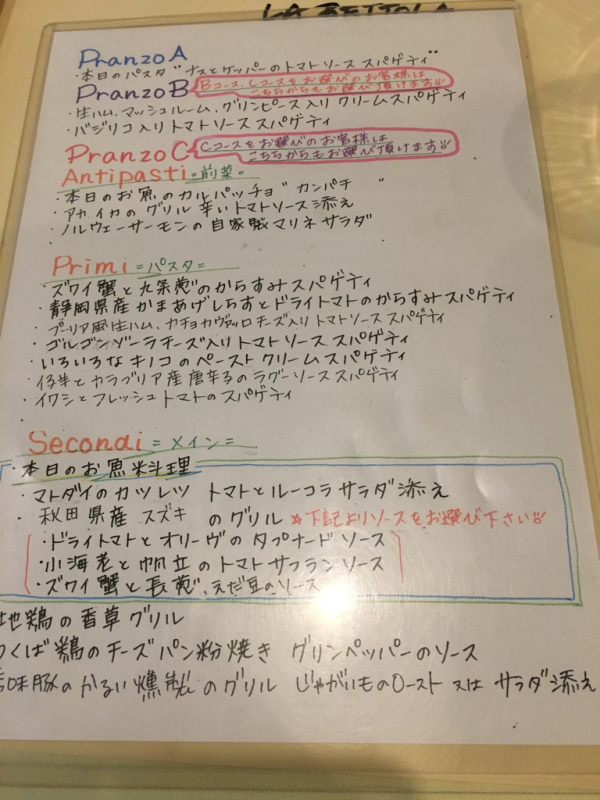 LA BETTOLA
Pranzo A
・本日のパスタ "ナスとケッパーのトマトソース スパゲティ"
Pranzo B Bコース、Cコースをお選びのお客様は
こちらからもお選び頂けます
・生ハム、マッシュルーム、グリンピース入り クリームスパゲティ
・バジリコ入りトマトソース スパゲティ
Pranzo C Cコースをお選びのお客様は
こちらからもお選び頂けます
Antipasti =前菜=
・本日のお魚のカルパッチョ "カンパチ"
・アカイカのグリル 辛いトマトソース添え
・ノルウェーサーモンの自家製マリネサラダ
Primi =パスタ=
・ズワイ蟹と九条葱のからすみスパゲティ
・静岡県産かまあげしらすとドライトマトのからすみスパゲティ
・プーリア風生ハム、カチョカヴァッロチーズ入りトマトソース スパゲティ
・ゴルゴンゾーラチーズ入りトマトソース スパゲティ
・いろいろなキノコのペーストクリームスパゲティ
・仔羊とカラブリア産唐辛子のラグーソース スパゲティ
・イワシとフレッシュトマトのスパゲティ
Secondi =メイン=
・本日のお魚料理
・マトダイのカツレツ トマトとルーコラサラダ添え
・秋田県産 スズキ のグリル ★下記よりソースをお選び下さい
・ドライトマトとオリーヴのタプナードソース
・小海老と帆立のトマトサフランソース
・ズワイ蟹と長葱、えだ豆のソース
地鶏の香草グリル
つくば鶏のチーズパン粉焼き グリンペッパーのソース
味豚のかるい燻製のグリル じゃがいものロースト 又は サラダ添え